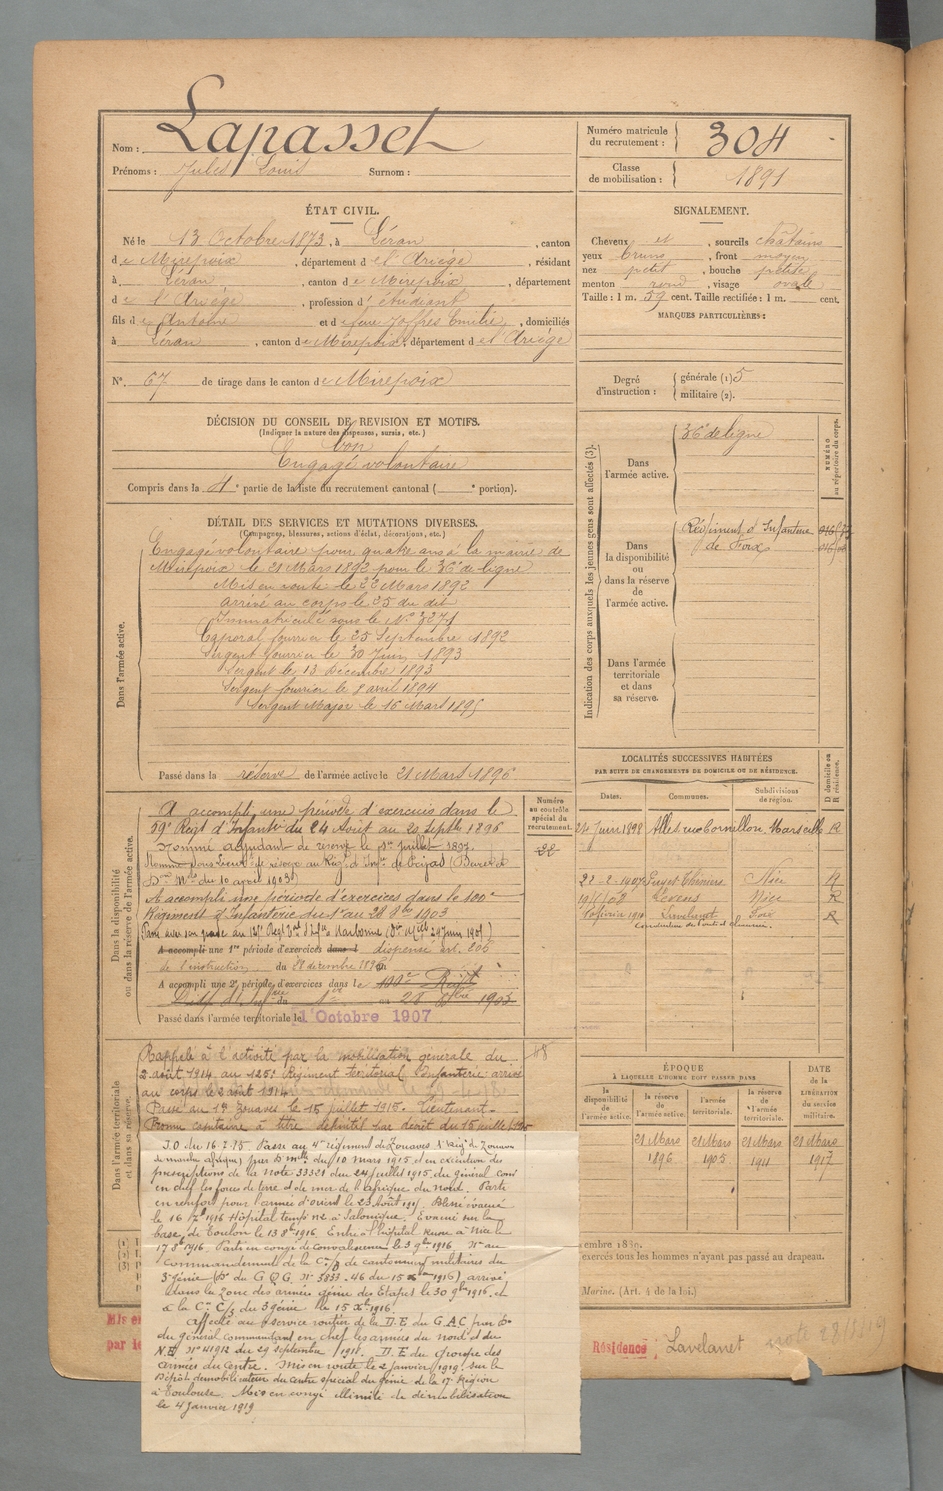 Nom : Lapasset
Prénoms : Jules Louis Surnom :
Numéro matricule du recrutement : 304
Classe de mobilisation : 1891
ÉTAT CIVIL.
Né le 13 Octobre 1873, à Léran, canton
de Mirepoix, département de l'Ariège, résidant
à Léran, canton de Mirepoix, département
de l'Ariège, profession d'étudiant
fils de Antoine et de feue Joffres Emilie, domiciliés
à Léran, canton de Mirepoix, département de l'Ariège
N°. 67 de tirage dans le canton de Mirepoix
SIGNALEMENT.
Cheveux et, sourcils châtains
yeux bruns, front moyen
nez petit, bouche petite
menton rond, visage ovale
Taille : 1 m. 59 cent. Taille rectifiée : 1 m. cent.
MARQUES PARTICULIÈRES :
Degré d'instruction : générale (1) 5
militaire (2).
DÉCISION DU CONSEIL DE REVISION ET MOTIFS.
(Indiquer la nature des dispenses, sursis, etc.)
bon
Engagé volontaire
Compris dans la 4e partie de la liste du recrutement cantonal ( e portion).
DÉTAIL DES SERVICES ET MUTATIONS DIVERSES.
(Campagnes, blessures, actions d'éclat, décorations, etc.)
Dans l'armée active.
Engagé volontaire pour quatre ans à la mairie de
Mirepoix le 21 Mars 1892 pour le 36e de ligne
Mis en route le 22 Mars 1892
arrivé au corps le 25 du dit
Immatriculé sous le N° 3271
Caporal fourrier le 25 Septembre 1892
Sergent fourrier le 30 Juin 1893
Sergent le 13 Décembre 1893
Sergent fourrier le 8 avril 1894
Sergent Major le 16 Mars 1895
Passé dans la réserve de l'armée active le 21 Mars 1896
Indication des corps auxquels les jeunes gens sont affectés (3).
NUMÉRO au répertoire du corps.
Dans l'armée active.
36e de ligne
Dans la disponibilité ou dans la réserve de l'armée active.
Régiment d'Infanterie
de Foix
Dans l'armée territoriale et dans sa réserve.
LOCALITÉS SUCCESSIVES HABITÉES
PAR SUITE DE CHANGEMENTS DE DOMICILE OU DE RÉSIDENCE.
Dates. Communes. Subdivisions de région. D domicile ou R résidence.
24 Juin 1898 Marseille R
22-2-1907 Puget-Théniers Nice R
Levens Nice R
Lavelanet Foix R
Conducteur des Ponts et chaussées.
Dans la disponibilité ou dans la réserve de l'armée active.
Numéro au contrôle spécial du recrutement.
22
A accompli une période d'exercices dans le
59e Régt d'Infantie du 24 Août au 20 Septbre 1896
Nommé adjudant de réserve le 1er Juillet 1897.
A accompli une période d'exercices dans le 100e
Régiment d'Infanterie du 1er au 28 8bre 1903
A accompli une 1re période d'exercices dans l dispensé art. 206
de l'instruction du 28 décembre 1895
A accompli une 2e période d'exercices dans le 100e Régt
d'Infrie du 1er au 28 8bre 1903
Passé dans l'armée territoriale le 1 Octobre 1907
Dans l'armée territoriale et dans sa réserve.
Rappelé à l'activité par la mobilisation générale du
2 août 1914 au 125e Régiment territorial Infanterie arrivé
au corps le 2 août 1914
Passé au 1er Zouaves le 15 juillet 1915. Lieutenant
J.O du 16.2.15 Passé au 4e régiment de Zouaves
prescriptions de la note 33321 du 24 juillet 1915 du général comt
en chef les forces de terre et de mer de l'afrique du nord. Parti
en renfort pour l'armée d'orient le 23 août 1915. Blessé évacué
le 16 7bre 1916 Hôpital temp. n°2 à Salonique. Evacué sur la
base de Toulon le 13 8bre 1916. Entré à l'hôpital Russe à Nice le
17 8bre 1916. Parti en congé de convalescence le 3 9bre 1916. Né au
commandement de la Cie C/3 de cantonniers militaires du
3e génie (Don du G.Q.G. N° 5833.46 du 15 1916) arrivé
dans la zone des armées génie des Etapes le 30 9bre 1916 et
à la Cie C/3 du 3e génie le 15 Xbre 1916
Affecté au service routier de la D.E du G.A.C par O.
du général commandant en chef les armées du nord et du
N.E N° 41912 du 29 septembre 1918. D.E du groupe des
armées du Centre. Mis en route le 2 janvier 1919 sur le
Dépôt démobilisateur du centre spécial du génie de la 17e Région
à Toulouse. Mis en congé illimité de démobilisation
le 4 Janvier 1919
ÉPOQUE
À LAQUELLE L'HOMME DOIT PASSER DANS
la disponibilité de l'armée active. la réserve de l'armée active. l'armée territoriale. la réserve de l'armée territoriale.
DATE de la LIBÉRATION du service militaire.
21 Mars 1896 21 Mars 1905 21 Mars 1911 21 Mars 1917
exercés tous les hommes n'ayant pas passé au drapeau.
Marine. (Art. 4 de la loi.)
Résidence : Lavelanet